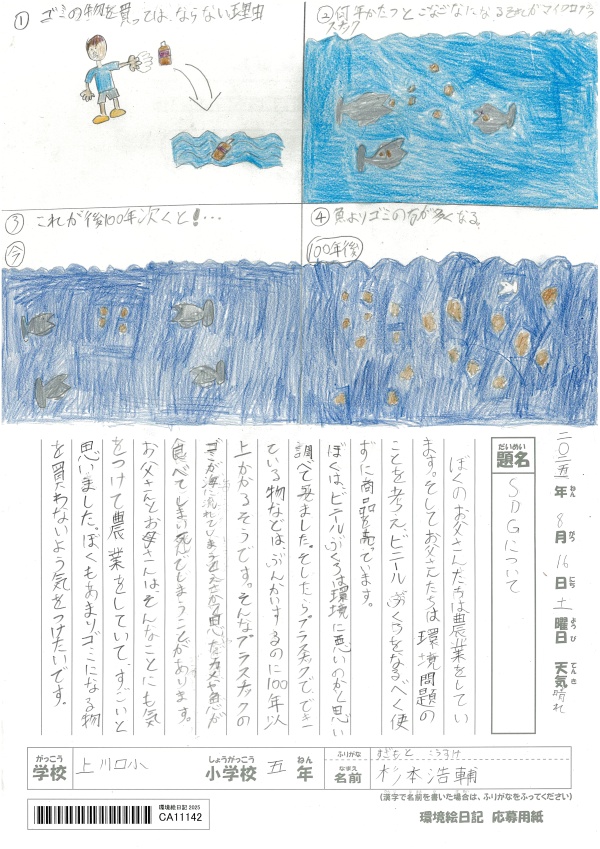 ① ゴミの物を買ってはならない理由
② 何年かたつとこなごなになるそれがマイクロプラ
スチック
③ これが後100年次くと！…
今
④ 魚よりゴミの方が多くなる
100年後
二〇二五年 8月 16日 土曜日 天気 晴れ
ねん がつ にち ようび てんき
だいめい
題名
SDGについて
ぼくのお父さんたちは農業をしてい
ます。そしてお父さんたちは環境問題の
ことを考えビニールぶくろをなるべく使
ずに商品を売っています。
ぼくは、ビニールぶくろは環境に悪いのかと思い
調べて見ました。そしたらプラスチックででき
ている物などは、ぶんかいするのに100年以
上かかるそうです。そんなプラスチックの
ゴミが海に流れてしまうと
食べてしまい死んでしまうことがあります。
お父さんとお母さんは、そんなことにも気
をつけて農業をしていて、すごいと
思いました。ぼくもあまりゴミになる物
を買わないよう気をつけたいです。
がっこう
学校
上川口小
しょうがっこう
小学校
五
ねん
年
ふりがな
すぎもと こうすけ
なまえ
名前
杉本浩輔
(漢字で名前を書いた場合は、ふりがなをふってください)
環境絵日記 2025
CA11142
環境絵日記 応募用紙